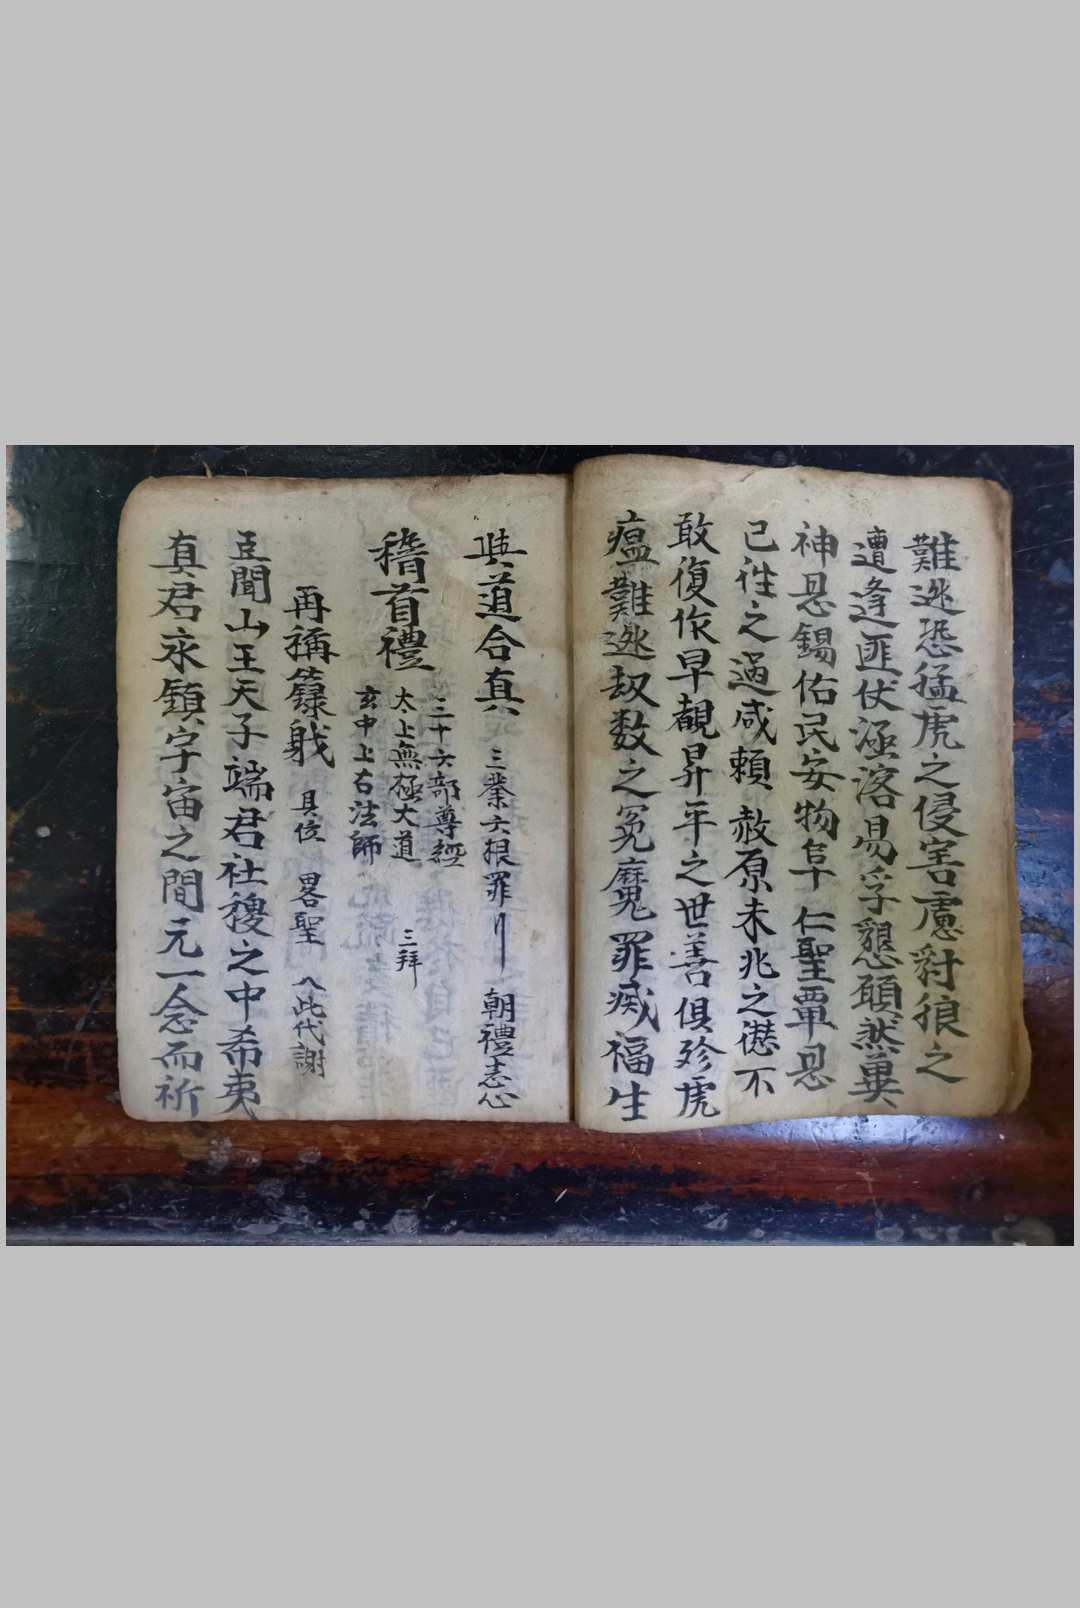 難逃恐猛虎之侵害慮豺狼之
遭逢匪仗涵落曷孚懇願然異
神恩錫佑民安物阜 仁聖覃恩
已徃之過咸賴 赦原未兆之愆不
敢復作早覩昇平之世善俱殄虎
瘟難逃刼数之冤魔罪滅福生
與道合真 三業六根罪 朝禮志心
稽首禮
三十六部尊經
太上無極大道 三拜
玄中上古法師
再稱籙職 具位 畧聖 入此代謝
臣聞山王天子端君社稷之中希夷
真君永鎮宇宙之間元一念而祈